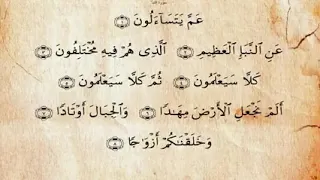 عَمَّ يَتَسَآءَلُونَ ۝١
عَنِ ٱلنَّبَإِ ٱلْعَظِيمِ ۝٢ ٱلَّذِى هُمْ فِيهِ مُخْتَلِفُونَ ۝٣
كَلَّا سَيَعْلَمُونَ ۝٤ ثُمَّ كَلَّا سَيَعْلَمُونَ ۝٥
أَلَمْ نَجْعَلِ ٱلْأَرْضَ مِهَٰدًا ۝٦ وَٱلْجِبَالَ أَوْتَادًا ۝٧
وَخَلَقْنَٰكُمْ أَزْوَٰجًا ۝٨